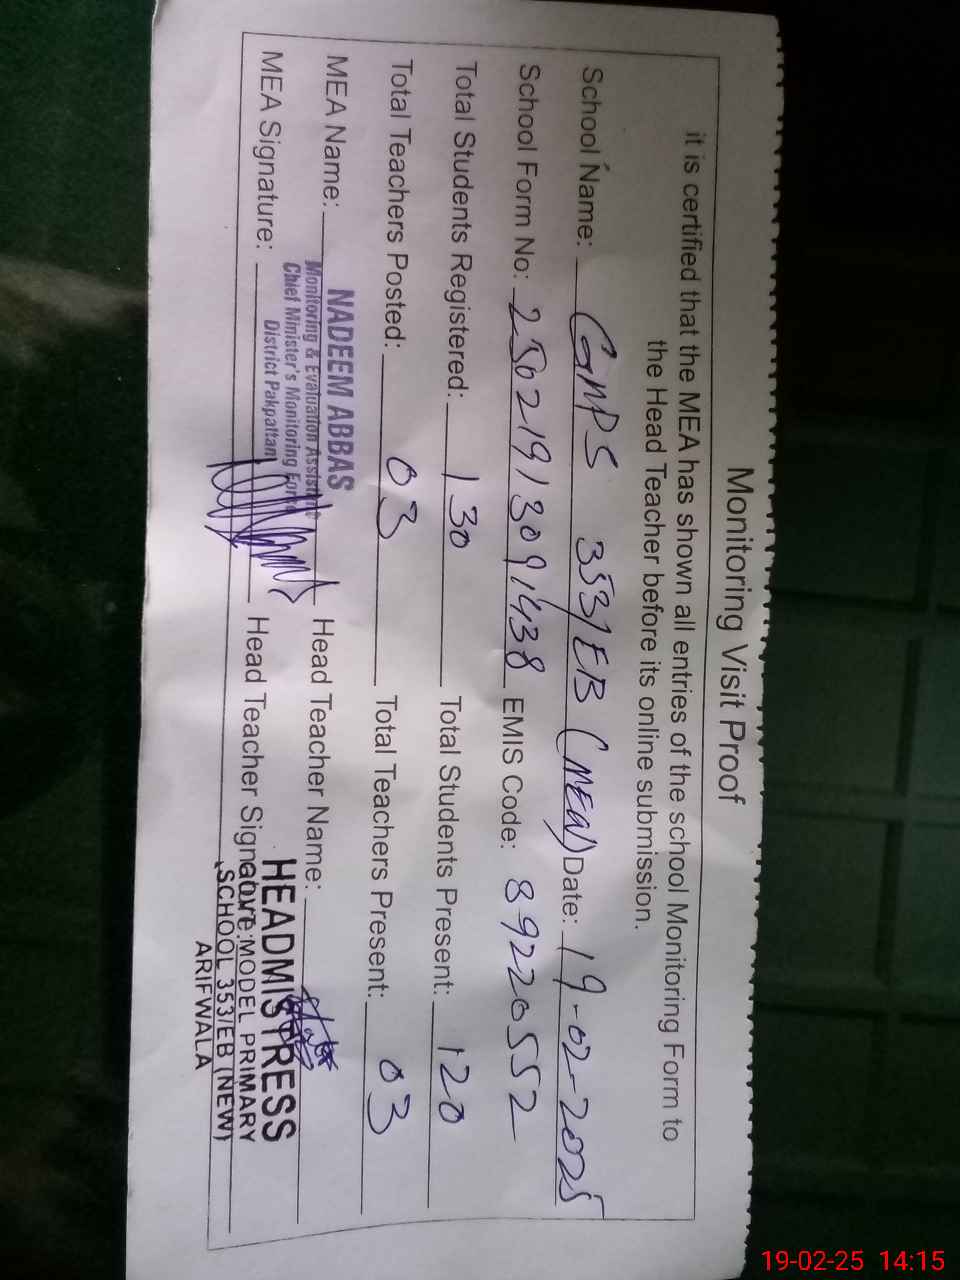 Monitoring Visit Proof
it is certified that the MEA has shown all entries of the school Monitoring Form to
the Head Teacher before its online submission.
School Name: GMPS 353/EB (NEW) Date: 19-02-2025
School Form No: 25021913091438 EMIS Code: 89220552
Total Students Registered: 130 Total Students Present: 120
Total Teachers Posted: 03 Total Teachers Present: 03
MEA Name: Head Teacher Name:
NADEEM ABBAS
Monitoring & Evaluation Assistant
Chief Minister's Monitoring Force
District Pakpattan
MEA Signature: Head Teacher Signature:
HEADMISTRESS
GOVT: MODEL PRIMARY
SCHOOL 353/EB (NEW)
ARIFWALA
19-02-25 14:15